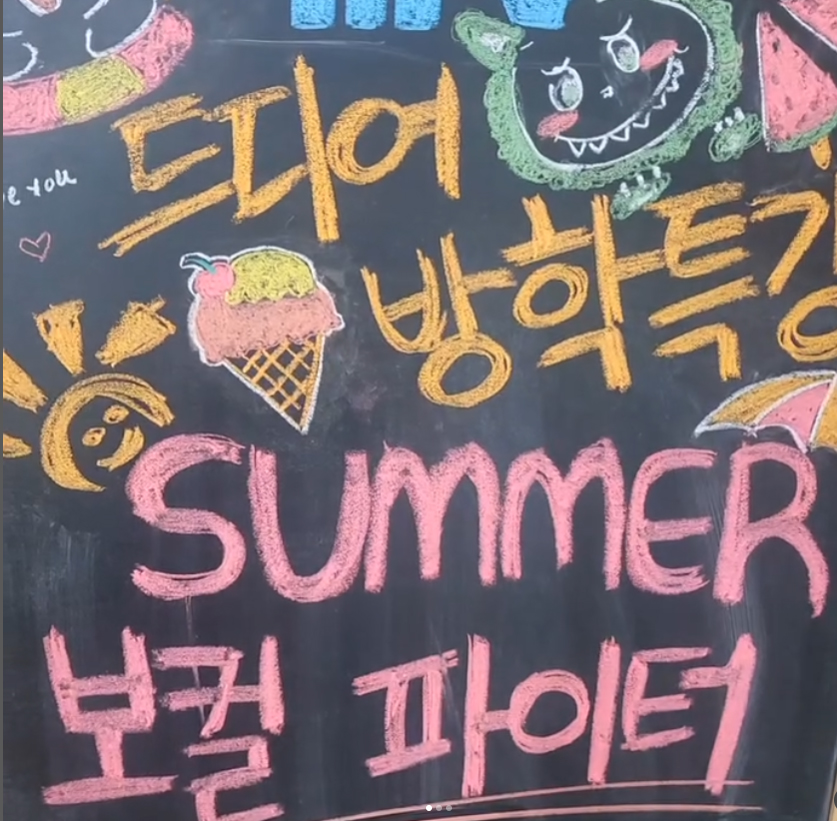 you
드디어
방학특강
SUMMER
보컬 파이터